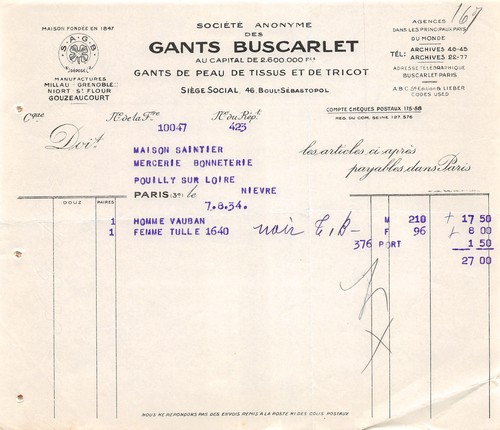 167
MAISON FONDÉE EN 1847
S.A.G.B.
MANUFACTURES
MILLAU - GRENOBLE
NIORT - St FLOUR
GOUZEAUCOURT
SOCIÉTÉ ANONYME
DES
GANTS BUSCARLET
AU CAPITAL DE 2.600.000 Frs
GANTS DE PEAU DE TISSUS ET DE TRICOT
SIÈGE SOCIAL, 46, BOULt SÉBASTOPOL
AGENCES
DANS LES PRINCIPAUX PAYS
DU MONDE
TÉL: ARCHIVES 40-45
ARCHIVES 26-77
ADRESSE TÉLÉGRAPHIQUE
BUSCARLET PARIS
A.B.C. 5th Edition & LIEBER
CODES USED
COMPTE CHÈQUES POSTAUX 175-58
REG. DU COM. SEINE 197.576
Cogae No de la Fre No du Répt
10047 423
Doit
MAISON SAINTIER
MERCERIE BONNETERIE
POUILLY SUR LOIRE
NIEVRE
les articles ci-après
payables dans Paris
PARIS (3e) le
7.8.34.
DOUZ PAIRES
1 HOMME VAUBAN M 210 17 50
1 FEMME TULLE 1640 noir F 96 8 00
376 PORT 1 50
27 00
NOUS NE RÉPONDONS PAS DES ENVOIS REMIS A LA POSTE NI DES COLIS POSTAUX